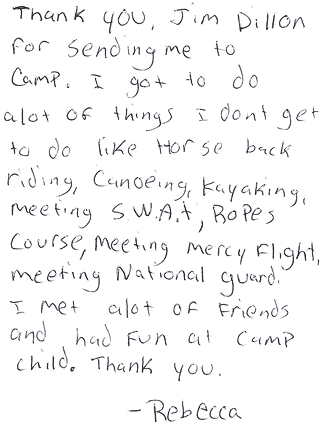 Thank you, Jim Dillon
For sending me to
Camp. I got to do
alot of things I dont get
to do like Horse back
riding, Canoeing, kayaking,
meeting S.W.A.t, Ropes
Course, Meeting mercy Flight,
meeting National guard.
I met alot of Friends
and had Fun at Camp
child. Thank you.
- Rebecca